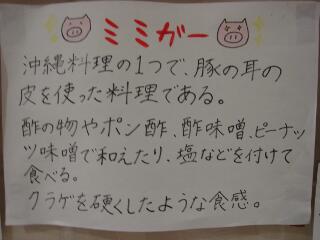 ミミガー
沖縄料理の1つで、豚の耳の
皮を使った料理である。
酢の物やポン酢、酢味噌、ピーナッ
ツ味噌で和えたり、塩などを付けて
食べる。
クラゲを硬くしたような食感。